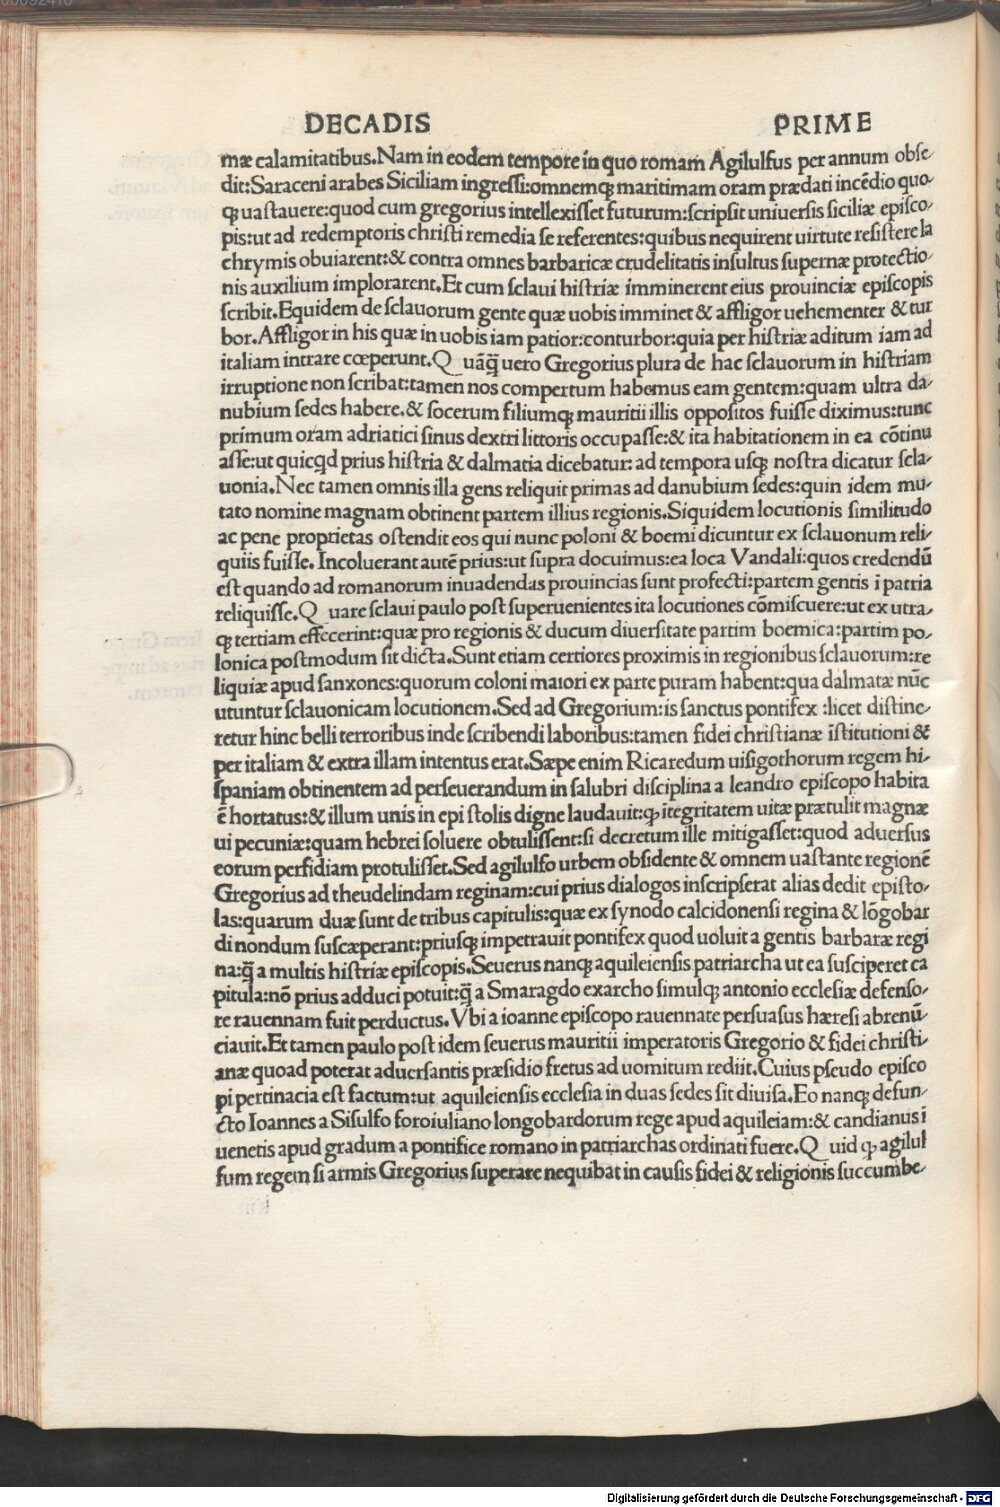 DECADIS PRIME
mæ calamitatibus.Nam in eodem tempore in quo romam Agilulfus per annum obse-
dit:Saraceni arabes Siciliam ingressi:omnemq; maritimam oram prædati incēdio quo-
q; uastauere:quod cum gregorius intellexisset futurum:scripsit uniuersis siciliæ episco-
pis:ut ad redemptoris christi remedia se referentes:quibus nequirent uirtute resistere la
chrymis obuiarent:& contra omnes barbaricæ crudelitatis insultus supernæ protectio-
nis auxilium implorarent.Et cum sclaui histriæ imminerent eius prouinciæ episcopis
scribit.Equidem de sclauorum gente quæ uobis imminet & affligor uehementer & tur
bor.Affligor in his quæ in uobis iam patior:conturbor:quia per histriæ aditum iam ad
italiam intrare cœperunt.Q uāq̄ uero Gregorius plura de hac sclauorum in histriam
irruptione non scribat:tamen nos compertum habemus eam gentem:quam ultra da-
nubium sedes habere.& socerum filiumq; mauritii illis oppositos fuisse diximus:tunc
primum oram adriatici sinus dextri littoris occupasse:& ita habitationem in ea cōtinu
asse:ut quicqd prius histria & dalmatia dicebatur: ad tempora usq; nostra dicatur scla-
uonia.Nec tamen omnis illa gens reliquit primas ad danubium sedes:quin idem mu-
tato nomine magnam obtinent partem illius regionis.Siquidem locutionis similitudo
ac pene proprietas ostendit eos qui nunc poloni & boemi dicuntur ex sclauonum reli-
quiis fuisse. Incoluerant autē prius:ut supra docuimus:ea loca Vandali:quos credendū
est quando ad romanorum inuadendas prouincias sunt profecti:partem gentis ī patria
reliquisse.Q uare sclaui paulo post superuenientes ita locutiones cōmiscuere:ut ex utra-
q; tertiam effecerint:quæ pro regionis & ducum diuersitate partim boemica:partim po-
lonica postmodum sit dicta.Sunt etiam certiores proximis in regionibus sclauorum:re
liquiæ apud sanxones:quorum coloni maiori ex parte puram habent:qua dalmatæ nūc
utuntur sclauonicam locutionem.Sed ad Gregorium:is sanctus pontifex :licet distine-
retur hinc belli terroribus inde scribendi laboribus:tamen fidei christianæ īstitutioni &
per italiam & extra illam intentus erat.Sæpe enim Ricaredum uisigothorum regem hi-
spaniam obtinentem ad perseuerandum in salubri disciplina a leandro episcopo habita
ē hortatus:& illum unis in epi stolis digne laudauit:ꝙ ītegritatem uitæ prætulit magnæ
ui pecuniæ:quam hebrei soluere obtulissent:si decretum ille mitigasset:quod aduersus
eorum perfidiam protulisset.Sed agilulfo urbem obsidente & omnem uastante regionē
Gregorius ad theudelindam reginam:cui prius dialogos inscripserat alias dedit episto-
las:quarum duæ sunt de tribus capitulis:quæ ex synodo calcidonensi regina & lōgobar
di nondum suscæperant:priusq; impetrauit pontifex quod uoluit a gentis barbaræ regi
na:q̄ a multis histriæ episcopis.Seuerus nanq; aquileiensis patriarcha ut ea susciperet ca
pitula:nō prius adduci potuit:q̄ a Smaragdo exarcho simulq; antonio ecclesiæ defenso-
re rauennam fuit perductus.Vbi a ioanne episcopo rauennate persuasus hæresi abrenū-
ciauit.Et tamen paulo post idem seuerus mauritii imperatoris Gregorio & fidei christi-
anæ quoad poterat aduersantis præsidio fretus ad uomitum rediit.Cuius pseudo episco
pi pertinacia est factum:ut aquileiensis ecclesia in duas sedes sit diuisa.Eo nanq; defun-
cto Ioannes a Sisulfo foroiuliano longobardorum rege apud aquileiam:& candianus ī
uenetis apud gradum a pontifice romano in patriarchas ordinati fuere.Q uid ꝙ agilul
fum regem si armis Gregorius superare nequibat in causis fidei & religionis succumbe-
Digitalisierung gefördert durch die Deutsche Forschungsgemeinschaft - DFG